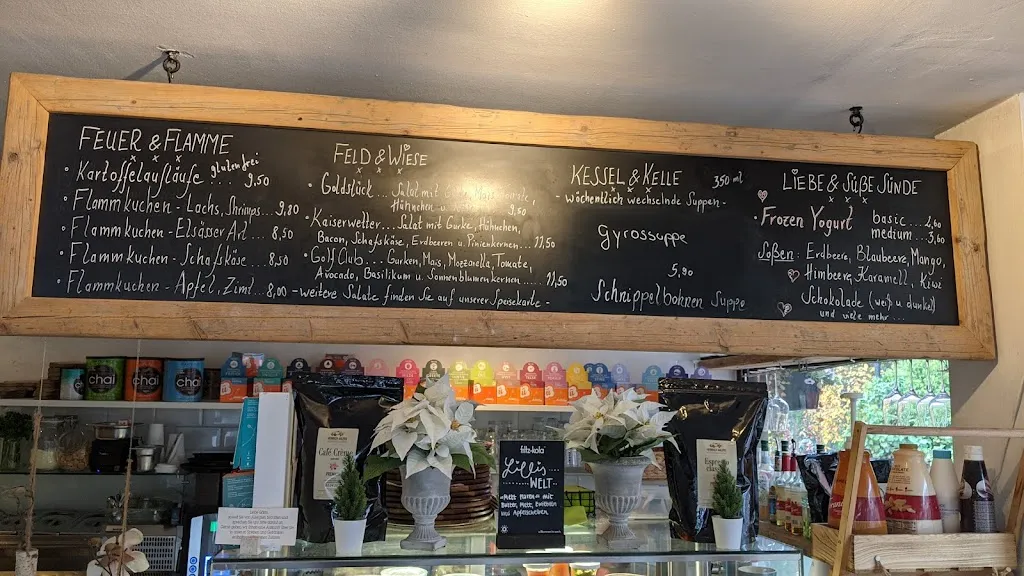 FEUER & FLAMME
Kartoffelaufläufe glutenfrei ... 9,50
Flammkuchen - Lachs, Shrimps... 9,80
Flammkuchen - Elsässer Art ... 8,50
Flammkuchen - Schafskäse ... 8,50
Flammkuchen - Apfel, Zimt... 8,00
FELD & WIESE
Goldstück ... Salat mit
Hähnchen u. 9,50
Kaiserwetter... Salat mit Gurke, Hähnchen,
Bacon, Schafskäse, Erdbeeren u. Pinienkernen... 11,50
Golf Club ... Gurken, Mais, Mozzarella, Tomate,
Avocado, Basilikum u. Sonnenblumenkernen ..... 11,50
- weitere Salate finden Sie auf unserer Speisekarte -
KESSEL & KELLE 350 ml
- wöchentlich wechselnde Suppen -
Gyrossuppe
5,90
Schnippelbohnen Suppe
LIEBE & SÜßE SÜNDE
Frozen Yogurt basic.... 2,60
medium.. 3,60
Soßen: Erdbeere, Blaubeere, Mango,
Himbeere, Karamell, Kiwi
Schokolade (weiß u. dunkel)
und viele mehr...
chai
chai
chai
Café Crème
fritz-kola
Lillis
WELT
Mett
Butter, Mett, Zwiebeln
und Apfelscheiben
Espresso